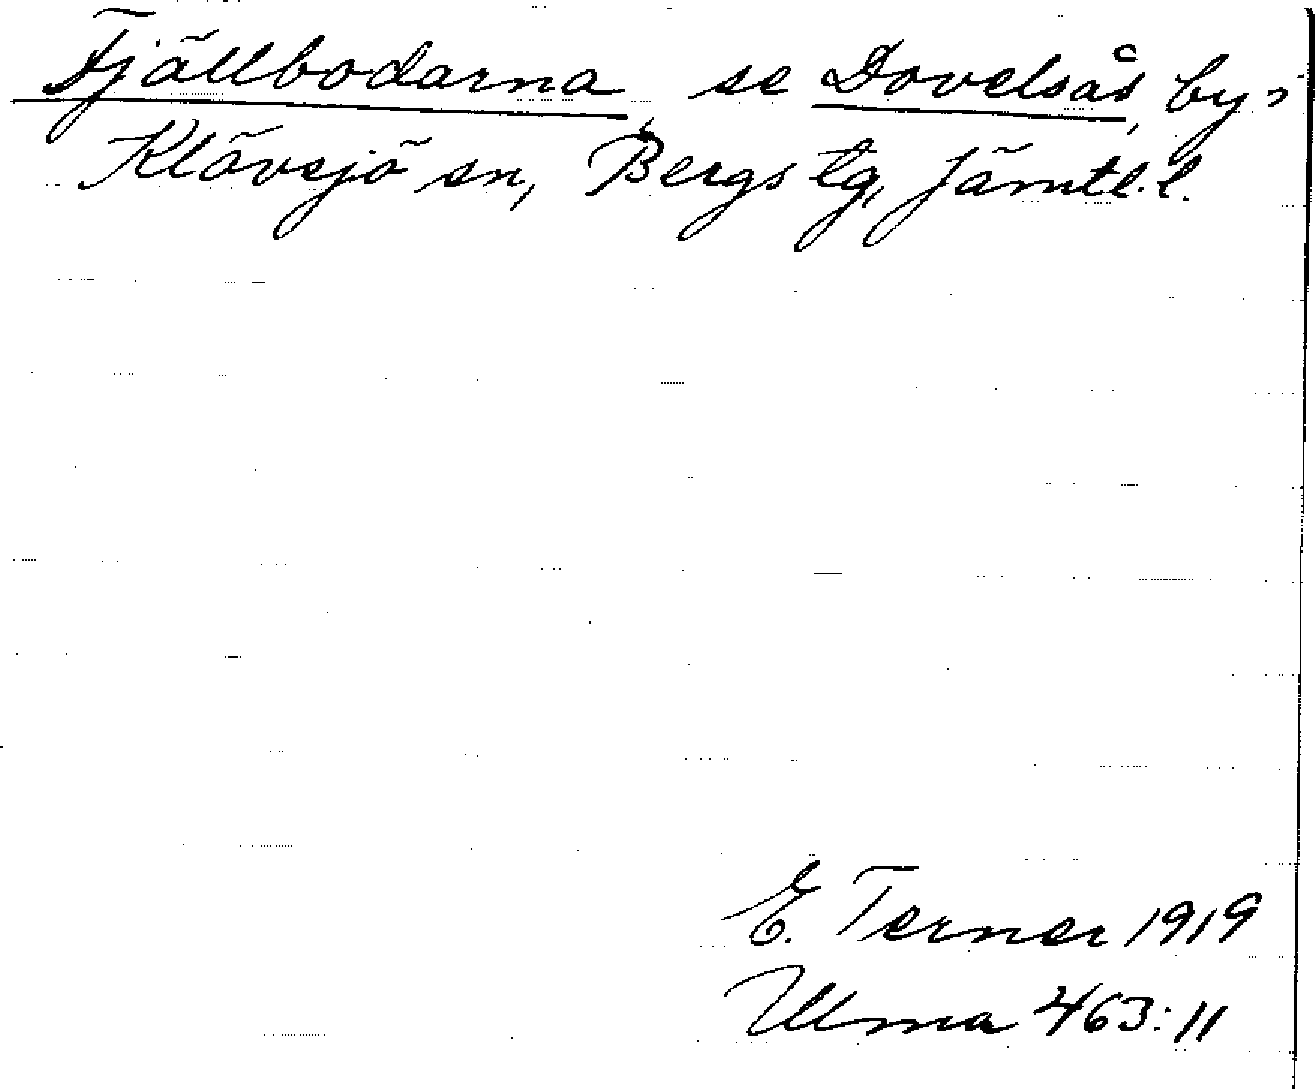 Fjällbodarna, se Dovelsås, by,
Klövsjö sn, Bergs tg, Jämtl.l.
E. Terner 1919
Ulma 463:11